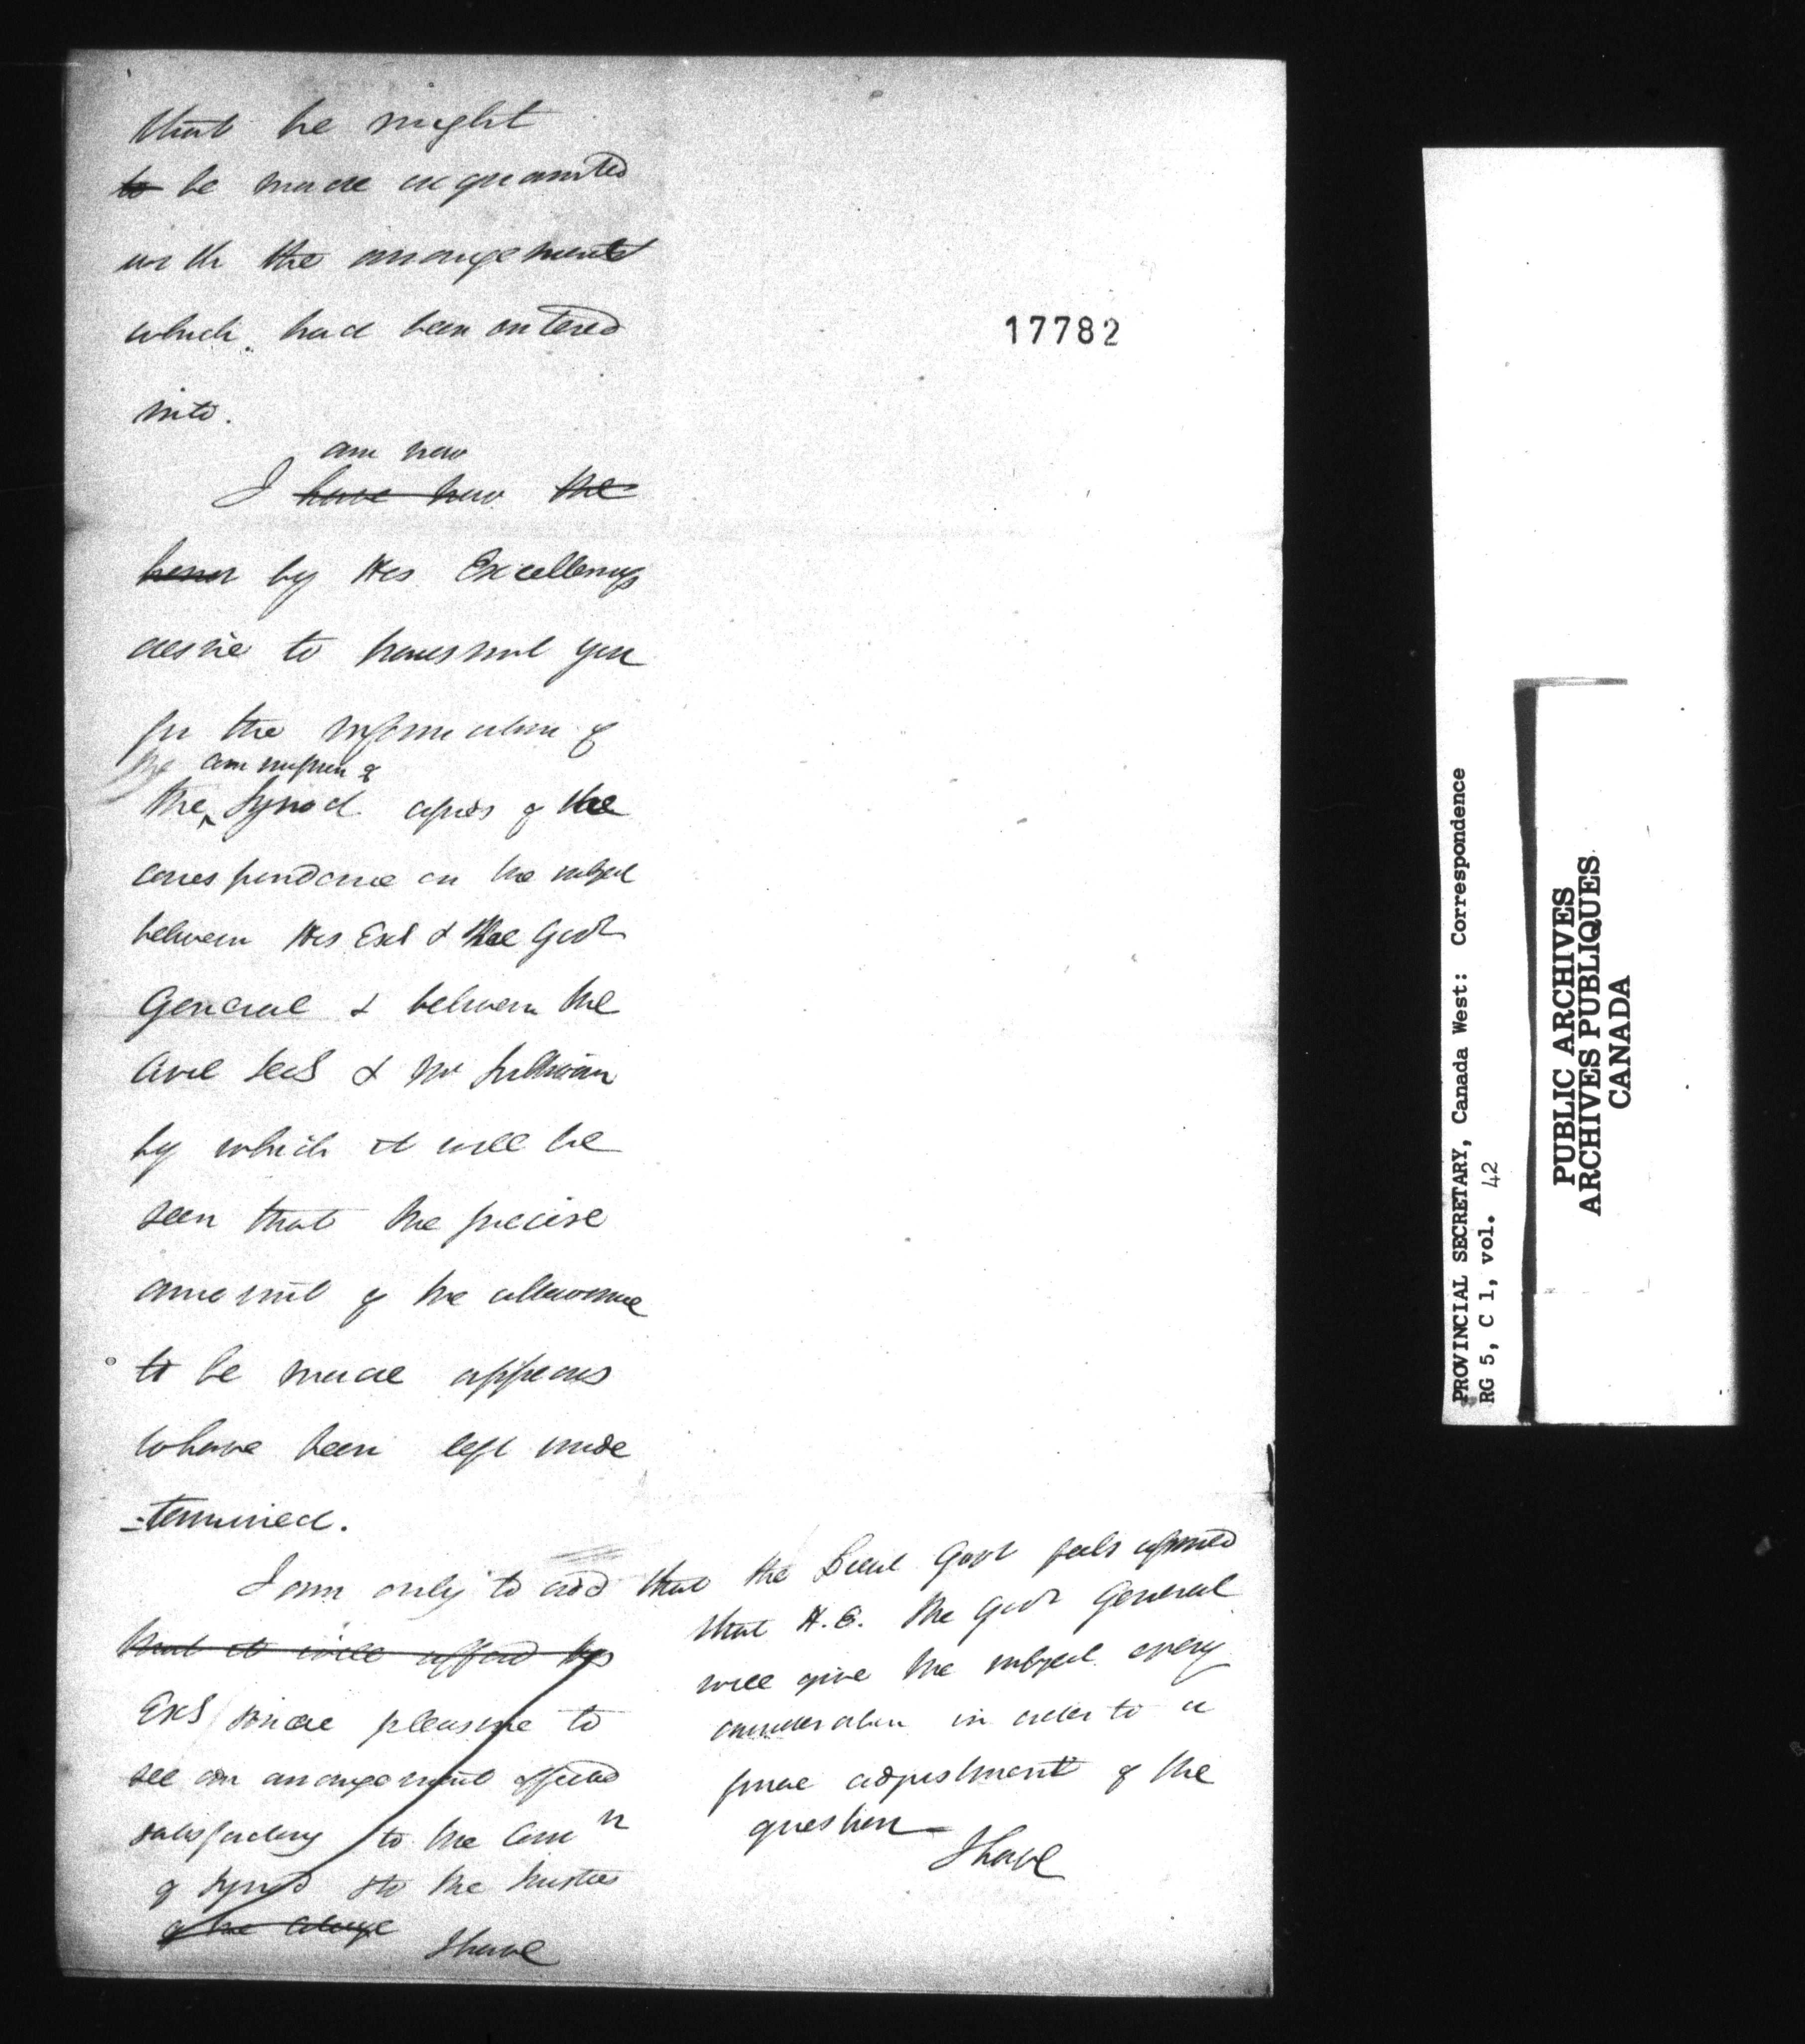 that he might
to be made acquainted
with the arrangements
which had been entered
into.
am now
I have now the
honor by His Excellencys
desire to transmit you
for the information of
the commission of
the Synod copies of the
correspondence on the subject
between His Exc & the Govr
General & between the
Civil Secy & Mr Sullivan
by which it will be
seen that the precise
amount of the allowance
to be made appears
to have been left unde
-termined.
I am only to add that the Lieut Govr feels assured
that it will afford his
Excy sincere pleasure to
see an arrangement effected
satisfactory to the Comn
of Synod & to the trustees
of the College
I have
that H.E. the Govr General
will give the subject every
consideration in order to a
final adjustment of the
question
I have
17782
PROVINCIAL SECRETARY, Canada West: Correspondence
RG 5, C 1, vol. 42
PUBLIC ARCHIVES
ARCHIVES PUBLIQUES
CANADA